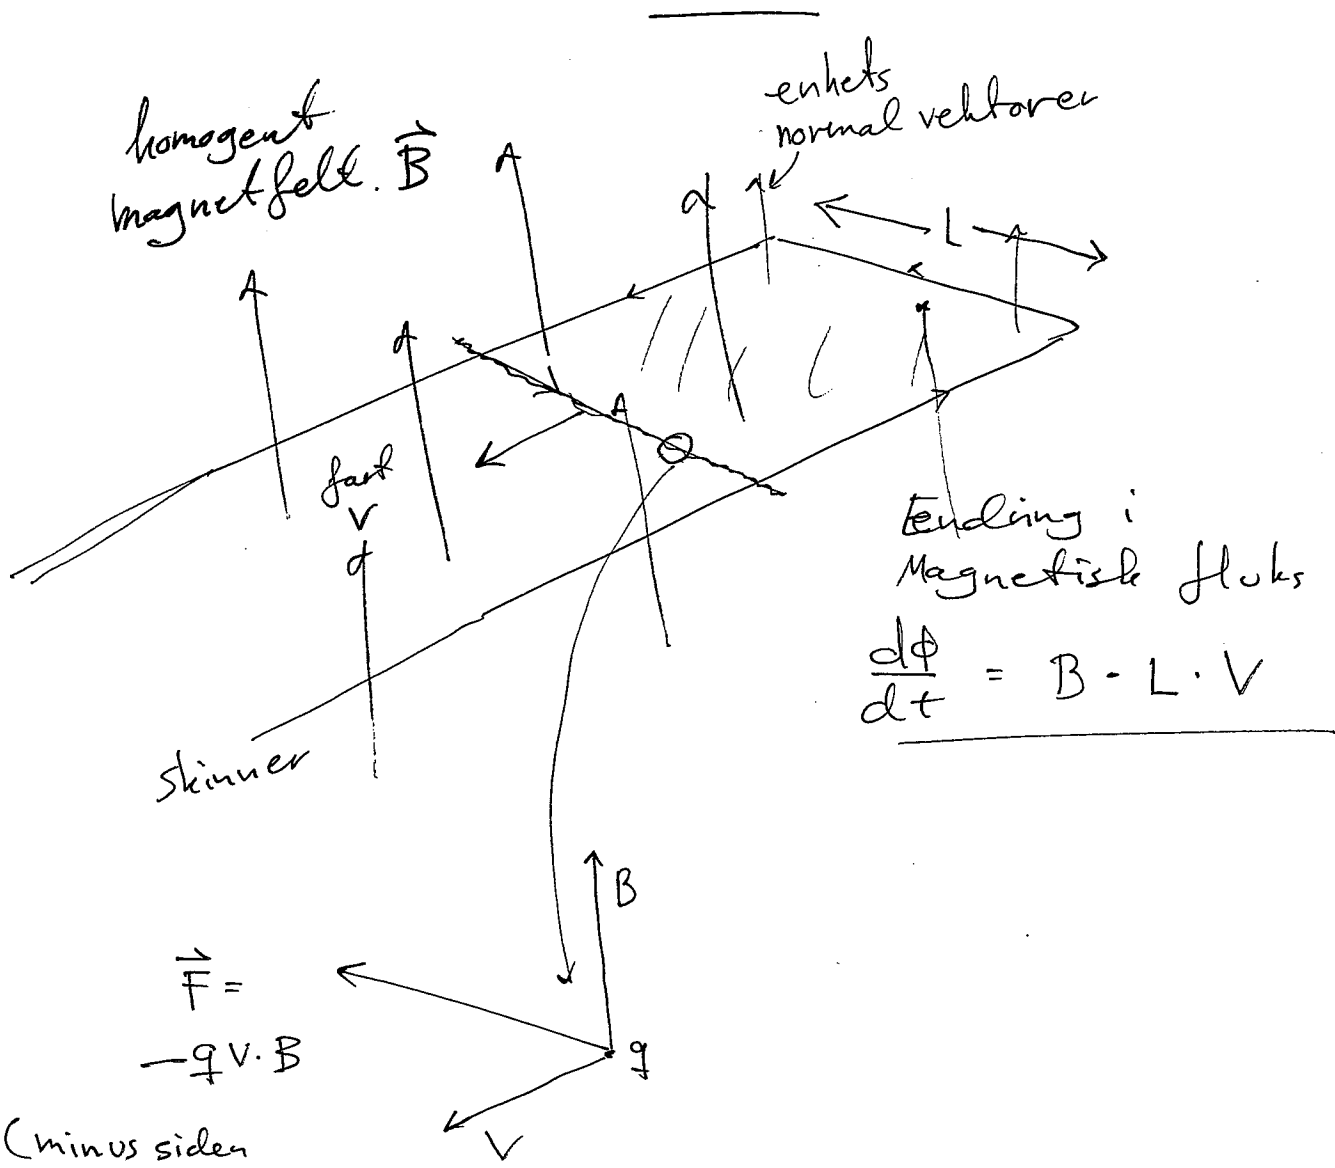 homogent
magnetfelt. B⃗
enhets
normal vektorer
L
fart
V
Endring i
Magnetisk fluks
dϕ/dt = B · L · V
skinner
B
F⃗ =
-q V · B
q
V
(minus siden